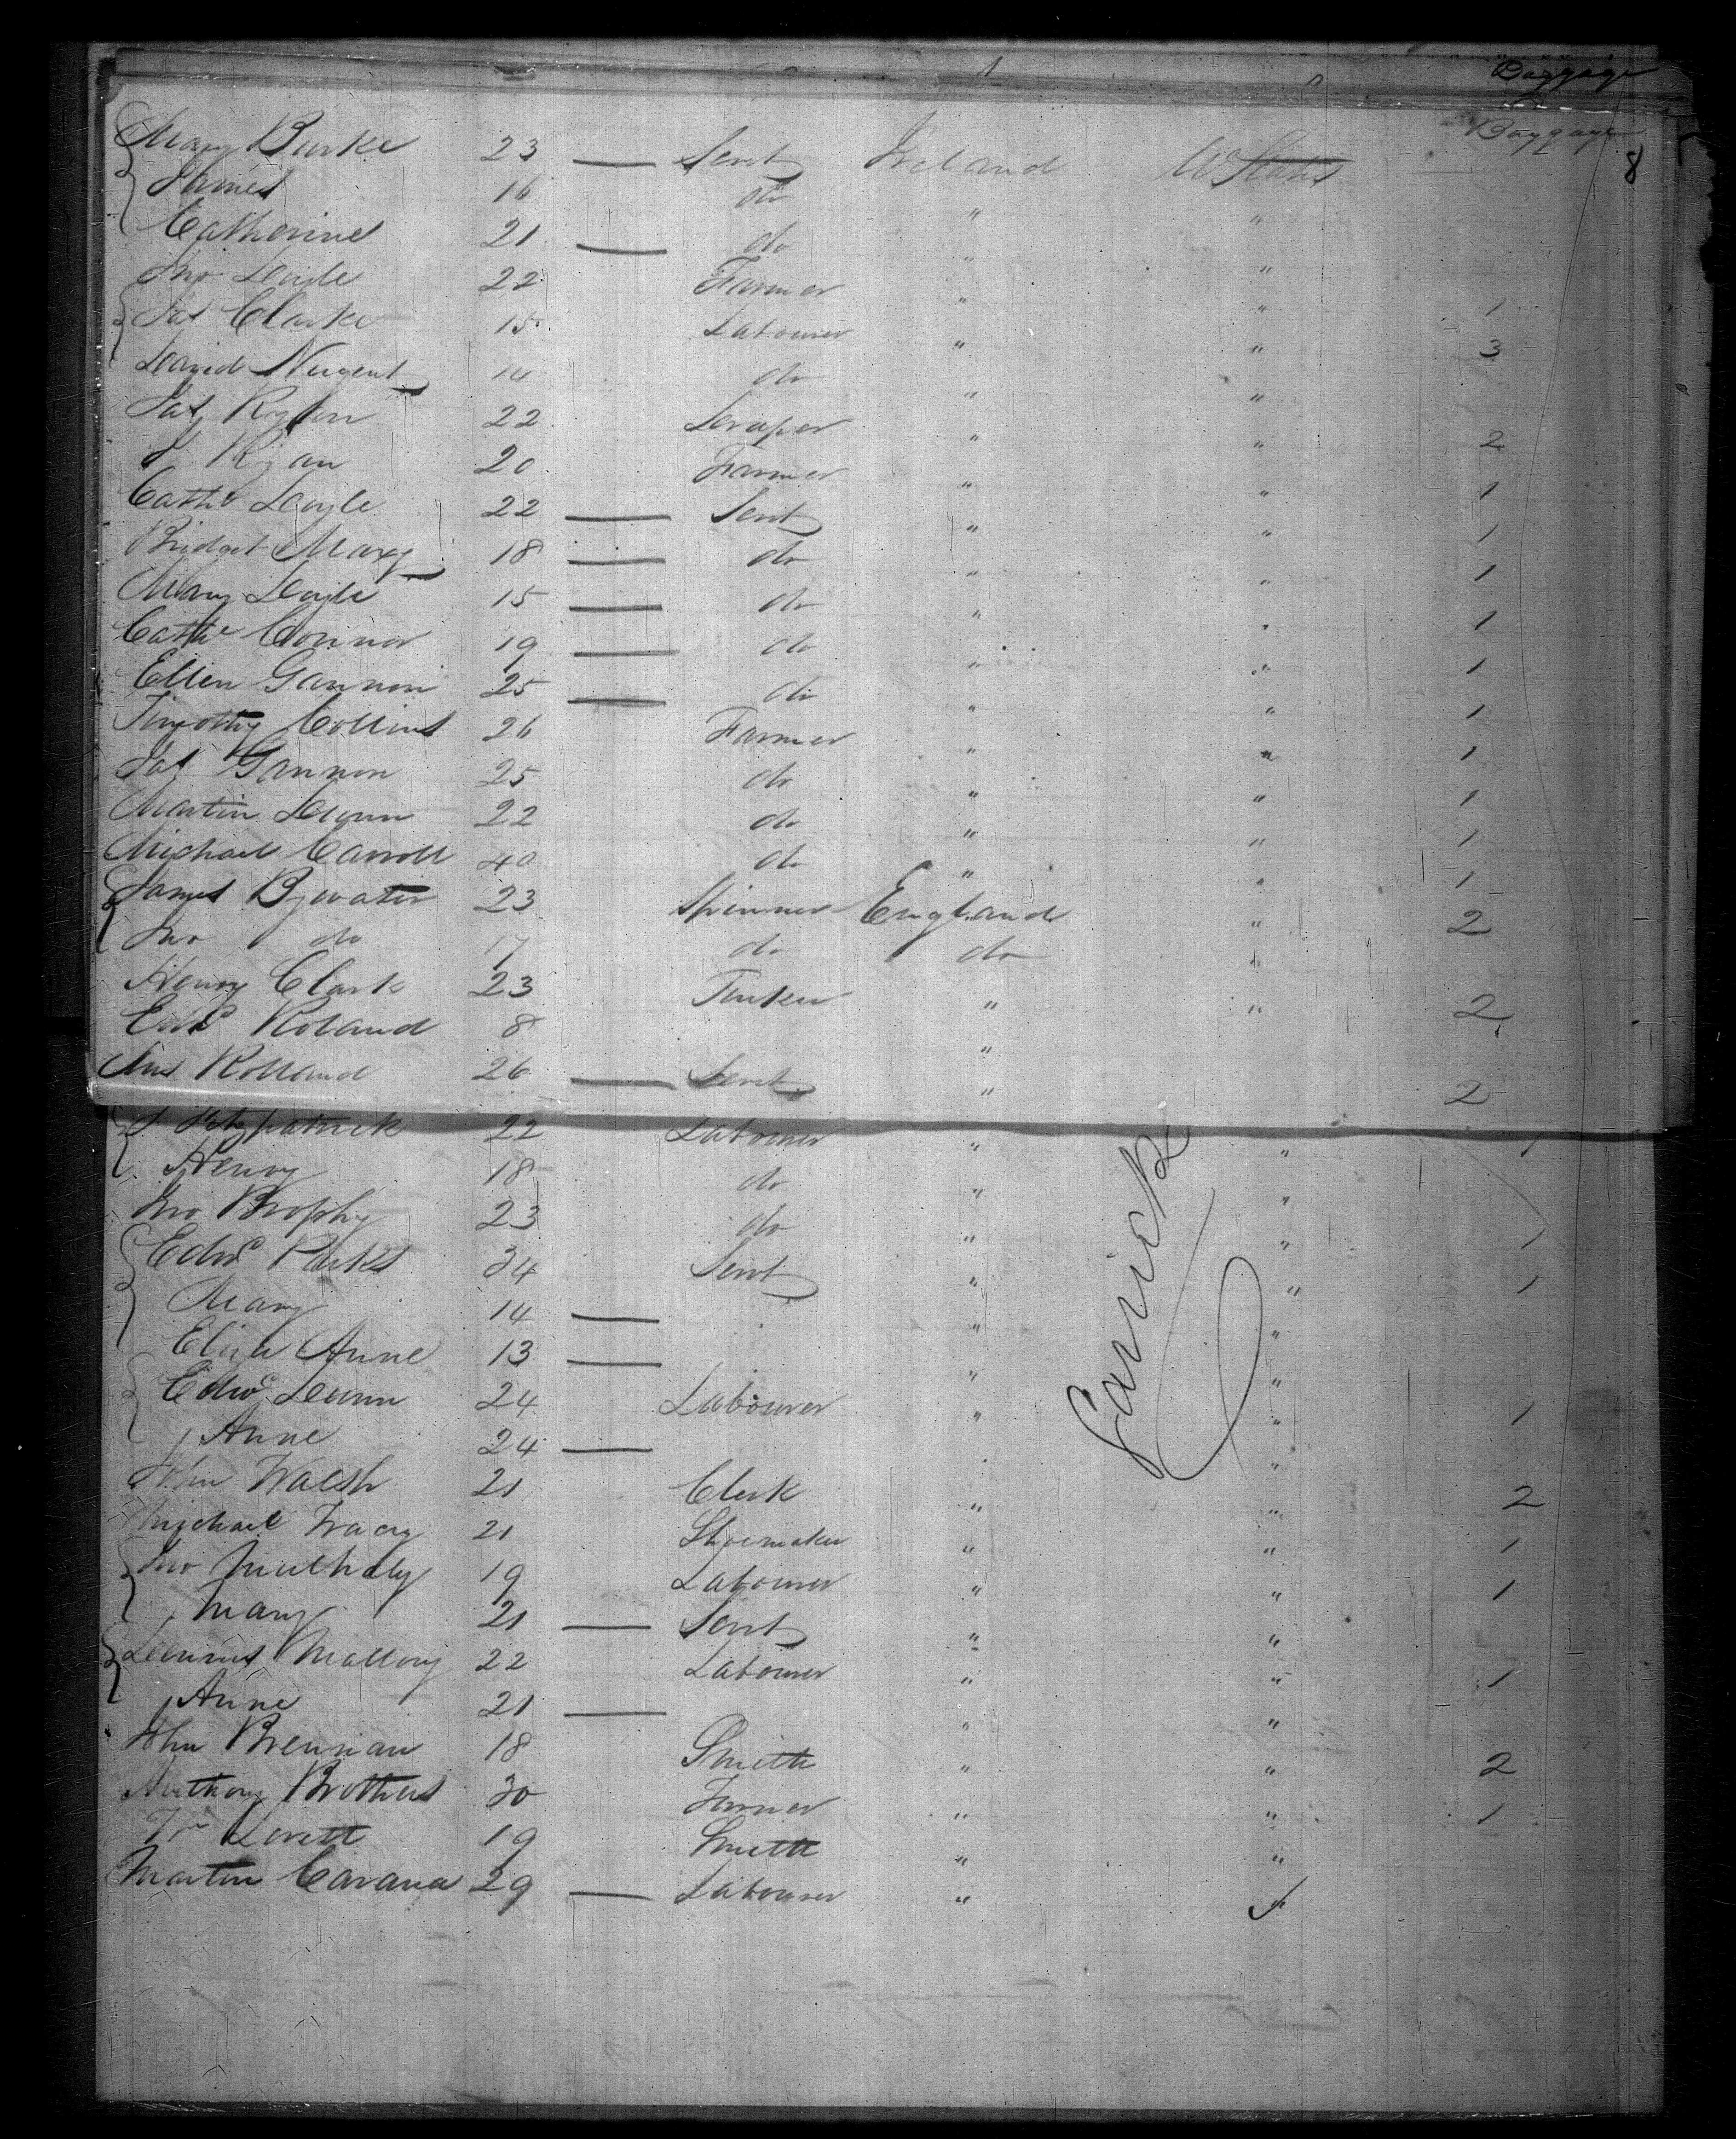 Baggage
Baggage
8
Mary Burke 23 — Servt Ireland U States
James 16 do " "
Catherine 21 — do " "
Jno Doyle 22 Farmer " " 1
Pat Clarke 15 Labourer " " 3
David Nugent 14 do " "
Pat 22 Draper " " 2
P Ryan 20 Farmer " " 1
Cathe Doyle 22 — Servt " " 1
Bridget Mary 18 — do " " 1
Mary Doyle 15 — do " " 1
Cathe Connor 19 — do " " 1
Ellen Gannon 25 — do " " 1
Timothy Collins 26 Farmer " " 1
Pat Gannon 25 do " " 1
Martin Dunn 22 do " " 1
Michael Carroll 40 do " " 1
James Bywater 23 Spinner England " 2
Jno do 17 do do "
Henry Clark 23 " " 2
Edwd Roland 8 "
Ann Rolland 26 — Servt " 2
P Fitzpatrick 22 Labourer " " 1
Henry 18 do " "
Jno Brophy 23 do " " 1
Edwd Parks 34 Servt " " 1
Mary 14 — " "
Eliza Anne 13 — " "
Edwd Dunn 24 Labourer " " 1
Anne 24 — "
John Walsh 21 Clerk " " 2
Michael Tracy 21 Shoemaker " " 1
Jno Mulhaly 19 Labourer " " 1
Mary 21 — Servt " "
Dennis Mallory 22 Labourer " " 1
Anne 21 — " "
John Brennan 18 Smith " " 2
Anthony Brothers 30 Farmer " " 1
Lovett 19 Smith " "
Martin Cavana 29 — Labourer "